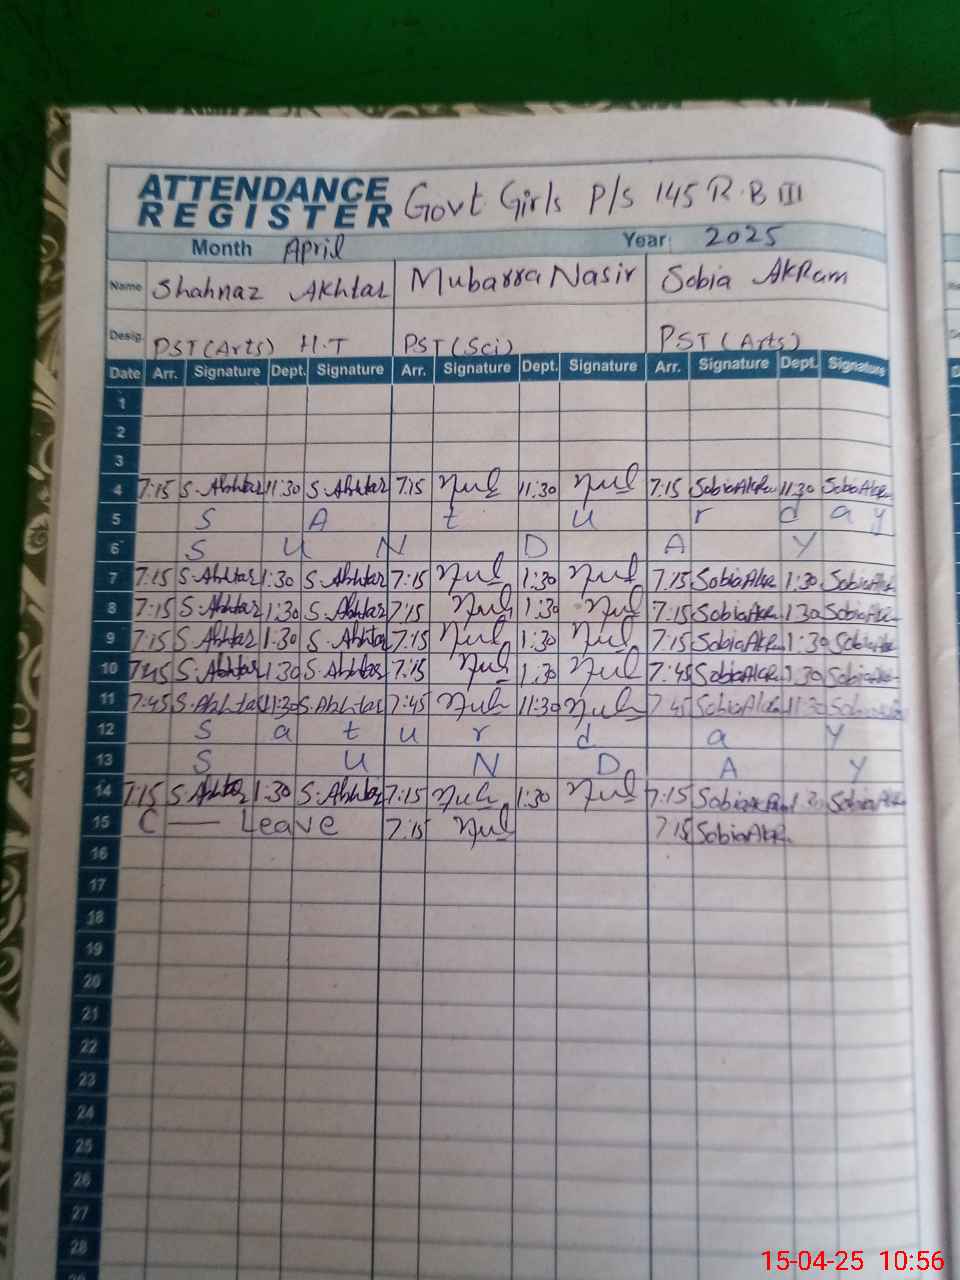 ATTENDANCE REGISTER Govt Girls P/S 145 R.B III
Month April Year: 2025
Name Shahnaz Akhtar Mubarra Nasir Sobia AkRam
Desig. PST(Arts) H.T PST(Sci) PST(Arts)
Date Arr. Signature Dept. Signature Arr. Signature Dept. Signature Arr. Signature Dept. Signature
1
2
3
4 7:15 S.Akhtar 11:30 S.Akhtar 7:15 11:30 7:15 SobiaAkRa 11:30 SobiaAkRa
5 S A t u r d a y
6 S U N D A Y
7 7:15 S.Akhtar 1:30 S.Akhtar 7:15 1:30 7:15 SobiaAkr 1:30 SobiaAkr
8 7:15 S.Akhtar 1:30 S.Akhtar 7:15 1:30 7:15 SobiaAkR 1:30 SobiaAkr
9 7:15 S.Akhtar 1:30 S.Akhtar 7:15 1:30 7:15 SobiaAkR 1:30 SobiaAkr
10 7:45 S.Akhtar 1:30 S.Akhtar 7:15 1:30 7:45 SobiaAkR 1:30 SobiaAkr
11 7:45 S.Akhtar 11:30 S.Akhtar 7:45 11:30 7:45 SobiaAkR 11:30
12 S a t u r d a y
13 S U N D A Y
14 7:15 S.Akhtar 1:30 S.Akhtar 7:15 1:30 7:15 SobiaAkRam 1:30 SobiaAkR
15 C — Leave 7:15 7:15 SobiaAkR
16
17
18
19
20
21
22
23
24
25
26
27
28
15-04-25 10:56